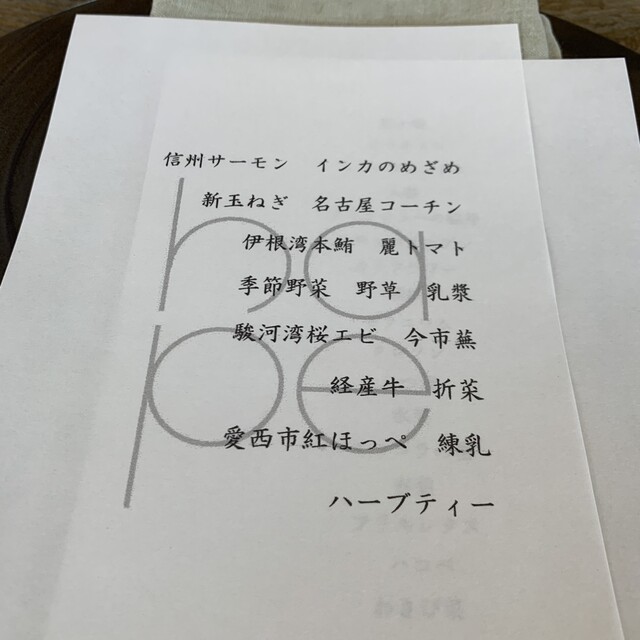 信州サーモン　インカのめざめ
新玉ねぎ　名古屋コーチン
伊根湾本鮪　麗トマト
季節野菜　野草　乳漿
駿河湾桜エビ　今市蕪
経産牛　折菜
愛西市紅ほっぺ　練乳
ハーブティー
ha
pe